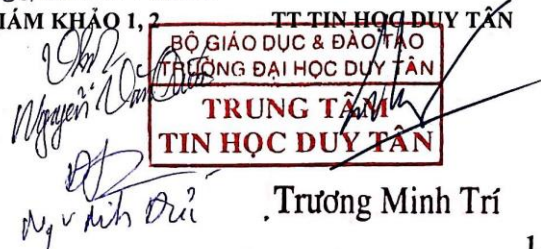 IÁM KHẢO 1, 2 TT TIN HỌC DUY TÂN
BỘ GIÁO DỤC & ĐÀO TẠO
TRƯỜNG ĐẠI HỌC DUY TÂN
TRUNG TÂM
TIN HỌC DUY TÂN
Nguyễn Văn
Trương Minh Trí
1